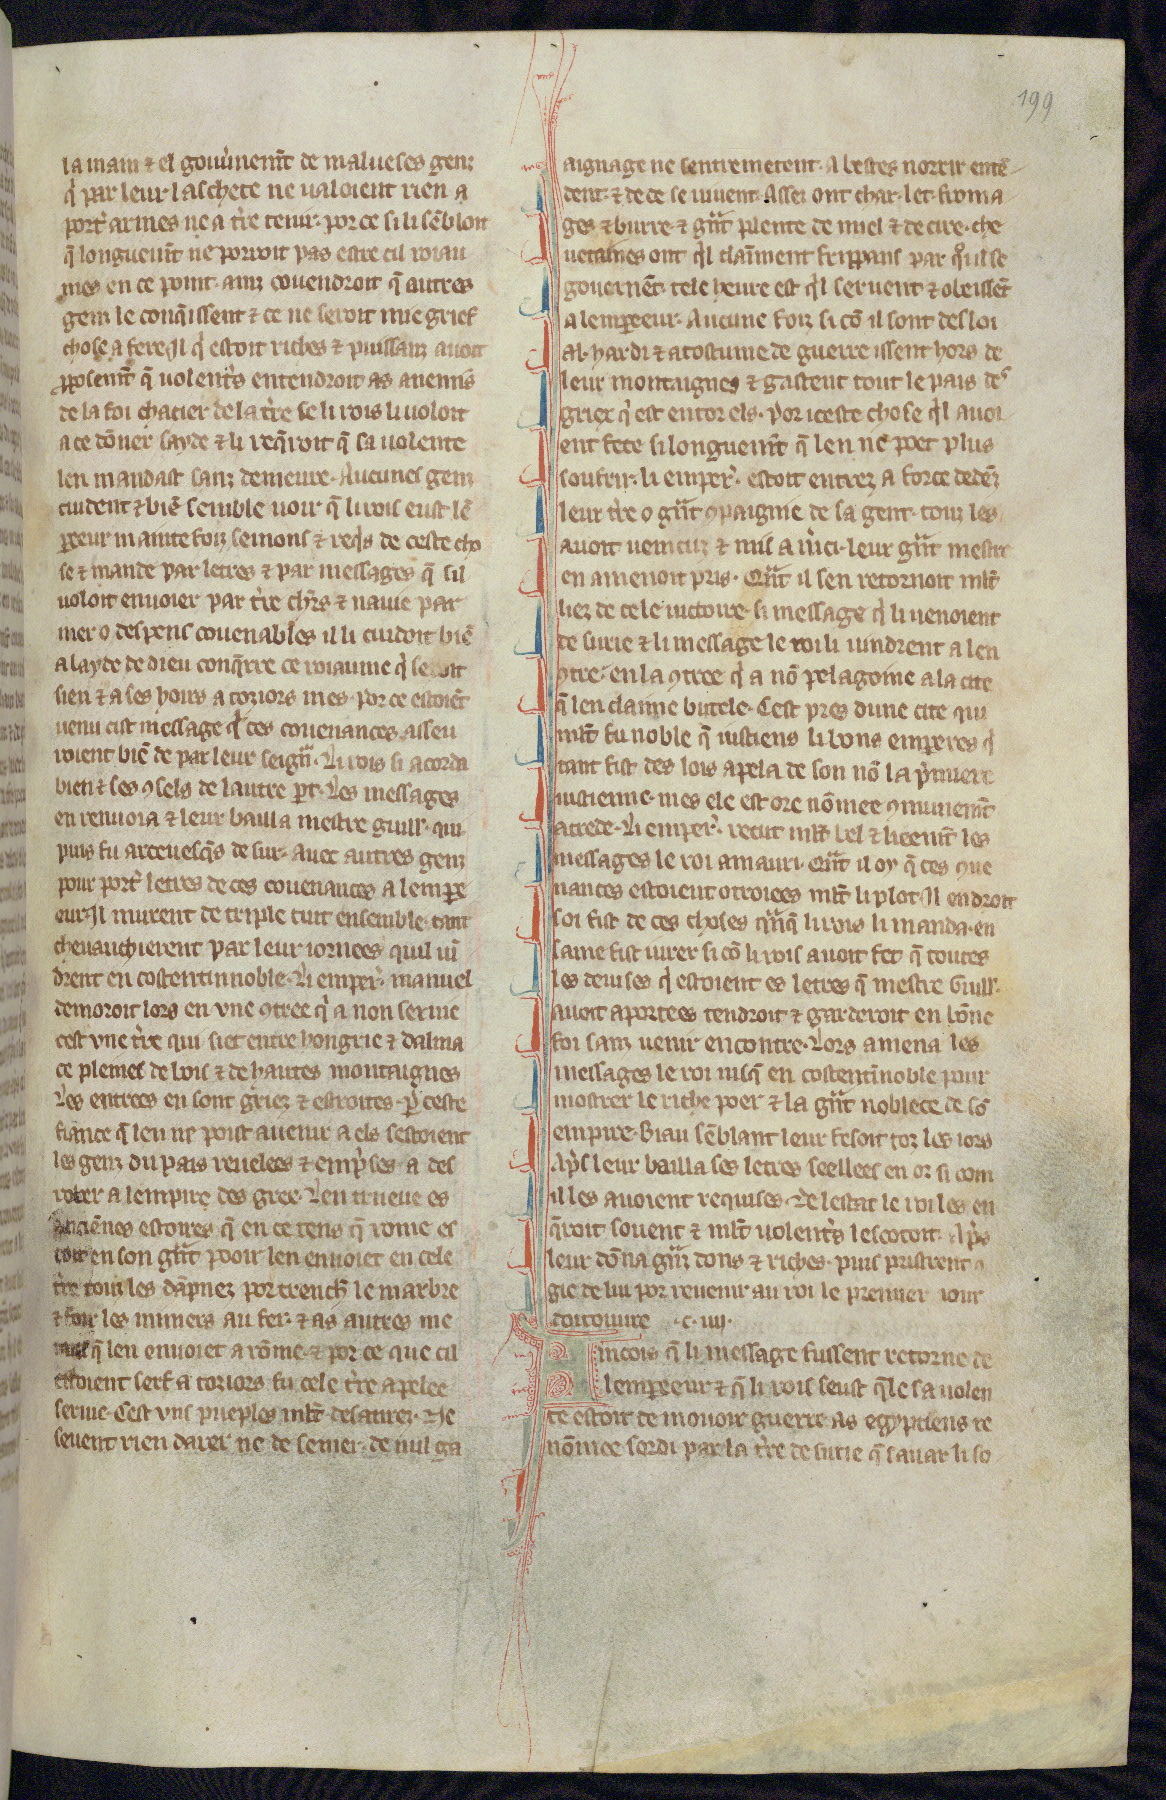 199
la main ⁊ el gouũnemẽt de malueses genz
q̃ par leur laschete ne ualoient rien a
port̃ armes ne a t̃re tenir. por ce si li sẽbloit
q̃ longuemẽt ne porroit pas estre cil roiau
mes en ce point. ainz couendroit q̃ autres
genz le conq̃issent ⁊ ce ne seroit mie grief
chose a fere. Il q̃ estoit riches ⁊ puissanz auoit
ꝓposemẽt q̃ uolent̃s entendroit as anemis
de la foi chacier de la t̃re se li rois li uoloit
a ce dõner sayde ⁊ li req̃roit q̃ sa uolente
len mandast sanz demeure. Aucunes genz
cuident ⁊ biẽ semble uoir q̃ li rois eust lẽ
pereur mainte foiz semons ⁊ req̃s de ceste cho
se ⁊ mande par letres ⁊ par messages q̃ sil
uoloit enuoier par t̃re ch̃rs ⁊ nauie par
mer o despens couenables il li cuidoit biẽ
a layde de dieu conq̃rre ce roiaume q̃ seroit
sien ⁊ a ses hoirs a toziors mes. por ce estoiẽt
uenu cist message q̃ ces couenances asseu
roient biẽ de par leur seign̄. Li rois si acorda
bien ⁊ ses ꝯsels de lautre p̃t. Les messages
en renuoia ⁊ leur bailla mestre guill. qui
puis fu arceuesq̃s de sur. auec autres genz
pour port̃ letres de ces couenances a lempe
eur. Il murent de triple tuit ensemble. tant
cheuauchierent par leur iornees quil uĩ
drent en costentinnoble. Li emper̃. manuel
demoroit lors en vne ꝯtree q̃ a non seruie
cest vne t̃re qui siet entre hongrie ⁊ dalma
ce pleines de bois ⁊ de hautes montaignes
Les entrees en sont griez ⁊ estroites. p̃ ceste
fiance q̃ len ne poist auenir a els sestoient
les genz du pais reuelees ⁊ emp̃ses a des
rober a lempire des grex. Len trueue es
anciẽnes estoires q̃ en ce tens q̃ rome es
toit en son g̃nt pooir len enuoiet en cele
t̃re touz les dãpnez por trench̃ le marbre
⁊ foir les miniers au fer. ⁊ as autres me
taus q̃ len enuoiet a rõme. ⁊ por ce que cil
estoient serf a toziors fu cele t̃re apelee
seruie. Cest vns pueples ml̃t desatirez. Ne
seuent rien darer ne de semer. de nul ga
aignage ne sentremetent. A bestes norrir entẽ
dent. ⁊ de ce se uiuent. Assez ont char. let. froma
ges ⁊ burre. ⁊ g̃nt plente de miel ⁊ de cire. che
uetaines ont q̃l claiment frippans par q̃ il se
gouernẽt. tele heure est q̃l seruent ⁊ obeissẽt
a lempereur. Aucune foiz si cõ il sont desloi
al. hardi ⁊ acostume de guerre issent hors de
leur montaignes ⁊ gastent tout le pais des
griex q̃ est entor els. Por iceste chose q̃l auoi
ent fete si longuemẽt q̃ len ne poet plus
soufrir. li emper̃. estoit entrez a force dedẽz
leur t̃re o g̃nt ꝯpaignie de sa gent. touz les
auoit uencuz ⁊ mis a m̃ci. leur g̃nt mestre
en amenoit pris. Qñt il sen retornoit ml̃t
liez de cele uictoire. si message q̃ li uenoient
de surie ⁊ li message le roi li uindrent a len
ꝯtre. en la ꝯtree q̃ a nõ pelagoine a la cite
q̃ len claime butele. Cest pres dune cite qui
ml̃t fu noble q̃ iustiens li bons emperes q̃
tant fist des lois apela de son nõ la p̃miere
iustienne. mes ele est ore nõmee ꝯmunemẽt
acrede. Li emper̃. recut ml̃t bel ⁊ liement les
messages le roi amauri. Qñt il oy q̃ ces ꝯue
nances estoient otroiees ml̃t li plot. Il endroit
soi fist de ces choses quãq̃ li rois li manda. en
same fist iurer si cõ li rois auoit fet q̃ toutes
les deuises q̃ estoient es letres q̃ mestre Guill.
auoit aportees tendroit ⁊ garderoit en bõne
foi sanz uenir encontre. Lors amena les
messages le roi iusq̃ en costentinoble pour
mostrer le riche poer ⁊ la g̃nt noblece de sõ
empire. Biau sẽblant leur fesoit toz les iors
Ap̃s leur bailla ses letres seellees en or si com
il les auoient requises. De lestat le roi les en
q̃roit souent ⁊ ml̃t uolent̃s lescotoit. Ap̃s
leur dõna g̃nz dons ⁊ riches. puis pristrent ꝯ
gie de lui por reuenir au roi le premier iour
doitouure .c. iiij.
Aincois q̃ li message fussent retorne de
lempereur ⁊ q̃ li rois seust q̃le sa uolen
te estoit de mouoir guerre as egyptiens re
nõmee sordi par la t̃re de surie q̃ sauar li so